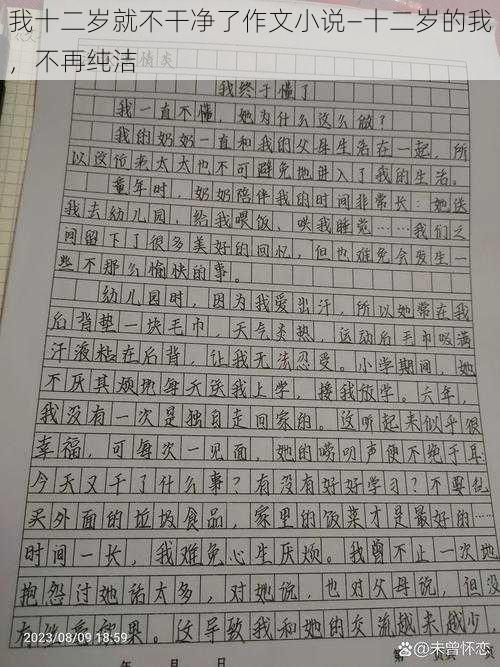 我十二岁就不干净了作文小说—十二岁的我
，不再纯洁
我终于懂了
我一直不懂，她为什么这么做？
我的奶奶一直和我的父母生活在一起，所
以这位老太太也不可避免地进入了我的生活。
童年时，奶奶陪伴我的时间非常长：她送
我去幼儿园，给我喂饭、哄我睡觉……我们之
间留下了很多美好的回忆，但也难免会发生一
些不那么愉快的事。
幼儿园时，因为我爱出汗，所以她常在我
后背垫一块毛巾，天气炎热，运动后毛巾吸满
汗液粘在后背，让我无法忍受。小学期间，她
不厌其烦地每天送我上学，接我放学。六年，
我没有一次是独自走回家的。这听起来似乎很
幸福，可每次一见面，她的唠叨声便不绝于耳
今天又干了什么事？有没有好好学习？不要乱
买外面的垃圾食品，家里的饭菜才是最好的……
时间一长，我难免心生厌烦。我曾不止一次地
抱怨过她话太多，对她说，也对父母说，但没
效果。这导致我和她的交流越来越少，
2023/08/09 18:59
年 月 日
@未曾怀恋